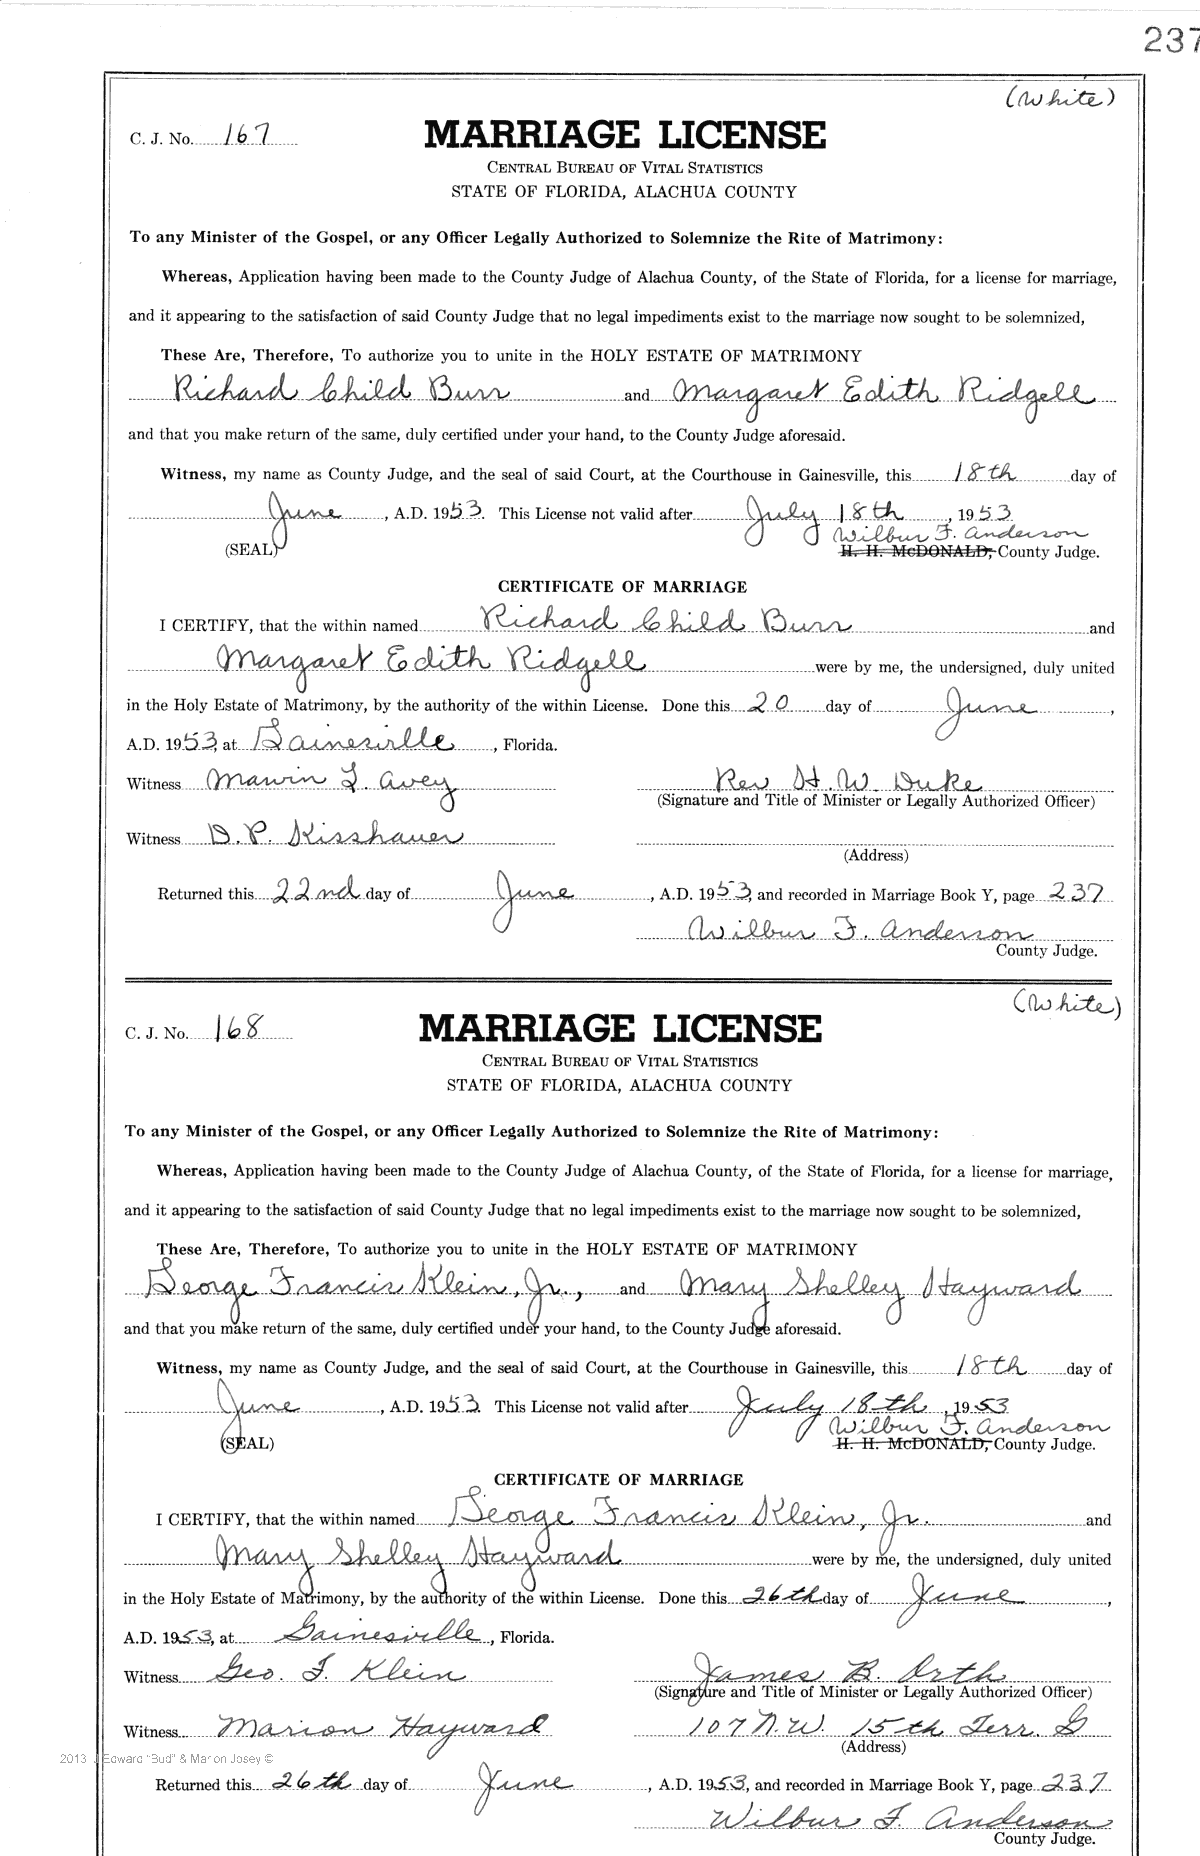 237
(White)
C. J. No. 167 MARRIAGE LICENSE
CENTRAL BUREAU OF VITAL STATISTICS
STATE OF FLORIDA, ALACHUA COUNTY
To any Minister of the Gospel, or any Officer Legally Authorized to Solemnize the Rite of Matrimony:
Whereas, Application having been made to the County Judge of Alachua County, of the State of Florida, for a license for marriage,
and it appearing to the satisfaction of said County Judge that no legal impediments exist to the marriage now sought to be solemnized,
These Are, Therefore, To authorize you to unite in the HOLY ESTATE OF MATRIMONY
Richard Child Burr and Margaret Edith Ridgell
and that you make return of the same, duly certified under your hand, to the County Judge aforesaid.
Witness, my name as County Judge, and the seal of said Court, at the Courthouse in Gainesville, this 18th day of
June, A.D. 1953. This License not valid after July 18th, 1953
Wilbur F. Anderson
(SEAL) H. H. McDONALD, County Judge.
CERTIFICATE OF MARRIAGE
I CERTIFY, that the within named Richard Child Burr and
Margaret Edith Ridgell were by me, the undersigned, duly united
in the Holy Estate of Matrimony, by the authority of the within License. Done this 20 day of June,
A.D. 1953, at Gainesville, Florida.
Witness Marvin L. Avey Rev H. W. Duke
(Signature and Title of Minister or Legally Authorized Officer)
Witness D. P. Kisshauer
(Address)
Returned this 22nd day of June, A.D. 1953, and recorded in Marriage Book Y, page 237
Wilbur F. Anderson
County Judge.
(White)
C. J. No. 168 MARRIAGE LICENSE
CENTRAL BUREAU OF VITAL STATISTICS
STATE OF FLORIDA, ALACHUA COUNTY
To any Minister of the Gospel, or any Officer Legally Authorized to Solemnize the Rite of Matrimony:
Whereas, Application having been made to the County Judge of Alachua County, of the State of Florida, for a license for marriage,
and it appearing to the satisfaction of said County Judge that no legal impediments exist to the marriage now sought to be solemnized,
These Are, Therefore, To authorize you to unite in the HOLY ESTATE OF MATRIMONY
George Francis Klein, Jr., and Mary Shelley Hayward
and that you make return of the same, duly certified under your hand, to the County Judge aforesaid.
Witness, my name as County Judge, and the seal of said Court, at the Courthouse in Gainesville, this 18th day of
June, A.D. 1953. This License not valid after July 18th, 1953
Wilbur F. Anderson
(SEAL) H. H. McDONALD, County Judge.
CERTIFICATE OF MARRIAGE
I CERTIFY, that the within named George Francis Klein, Jr. and
Mary Shelley Hayward were by me, the undersigned, duly united
in the Holy Estate of Matrimony, by the authority of the within License. Done this 26th day of June,
A.D. 1953, at Gainesville, Florida.
Witness Geo. F. Klein James B. Orth
(Signature and Title of Minister or Legally Authorized Officer)
Witness Marion Hayward 107 N.W. 15th Terr. G
(Address)
2013 J Edward "Bud" & Marion Josey ©
Returned this 26th day of June, A.D. 1953, and recorded in Marriage Book Y, page 237
Wilbur F. Anderson
County Judge.